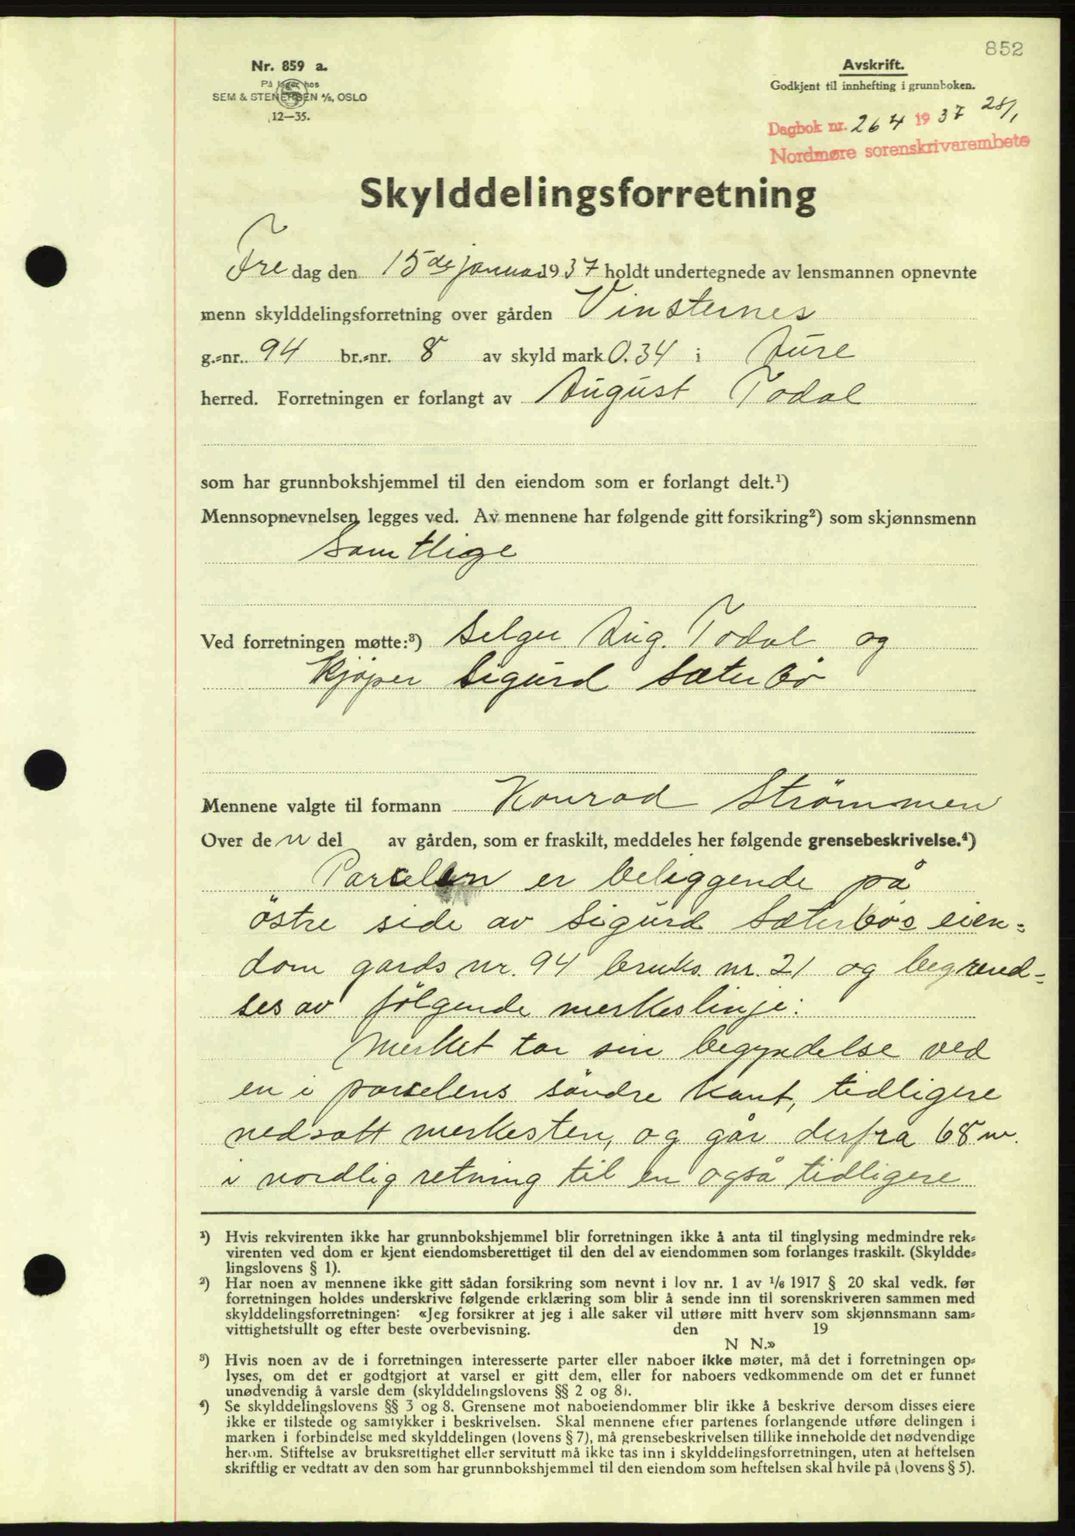 852
Nr. 859 a.
På lager hos
SEM & STENERSEN A/S, OSLO
12—35.
Avskrift.
Godkjent til innhefting i grunnboken.
Dagbok nr. 264 1937 28/1
Nordmøre sorenskrivarembete
Skylddelingsforretning
Fredag den 15de januar 1937 holdt undertegnede av lensmannen opnevnte
menn skylddelingsforretning over gården Vinsternes
g.-nr. 94 br.-nr. 8 av skyld mark 0.34 i Aure
herred. Forretningen er forlangt av August Todal
som har grunnbokshjemmel til den eiendom som er forlangt delt.¹)
Mennsopnevnelsen legges ved. Av mennene har følgende gitt forsikring²) som skjønnsmenn
Samtlige
Ved forretningen møtte:³) Selger Aug. Todal og
kjøper Sigurd Sæterbö
Mennene valgte til formann Konrad Strömmen
Over den del av gården, som er fraskilt, meddeles her følgende grensebeskrivelse.⁴)
Parcelen er beliggende på
östre side av Sigurd Sæterbös eien=
dom gards nr. 94 bruks nr. 21 og begrend=
ses av fölgende merkeslinje:
Merket tar sin begyndelse ved
en i parcelens söndre kant, tidligere
nedsatt merkesten, og går derfra 68 m.
i nordlig retning til en også tidligere
¹) Hvis rekvirenten ikke har grunnbokshjemmel blir forretningen ikke å anta til tinglysing medmindre rek=
virenten ved dom er kjent eiendomsberettiget til den del av eiendommen som forlanges fraskilt. (Skyldde=
lingslovens § 1).
²) Har noen av mennene ikke gitt sådan forsikring som nevnt i lov nr. 1 av 1/6 1917 § 20 skal vedk. før
forretningen holdes underskrive følgende erklæring som blir å sende inn til sorenskriveren sammen med
skylddelingsforretningen: «Jeg forsikrer at jeg i alle saker vil utføre mitt hverv som skjønnsmann sam=
vittighetsfullt og efter beste overbevisning. den 19
N N.»
³) Hvis noen av de i forretningen interesserte parter eller naboer ikke møter, må det i forretningen op=
lyses, om det er godtgjort at varsel er gitt dem, eller for naboers vedkommende om det er funnet
unødvendig å varsle dem (skylddelingslovens §§ 2 og 8).
⁴) Se skylddelingslovens §§ 3 og 8. Grensene mot naboeiendommer blir ikke å beskrive dersom disses eiere
ikke er tilstede og samtykker i beskrivelsen. Skal mennene efter partenes forlangende utføre delingen i
marken i forbindelse med skylddelingen (lovens § 7), må grensebeskrivelsen tillike inneholde det nødvendige
herom. Stiftelse av bruksrettighet eller servitutt må ikke tas inn i skylddelingsforretningen, uten at heftelsen
skriftlig er vedtatt av den som har grunnbokshjemmel til den eiendom som heftelsen skal hvile på (lovens § 5).